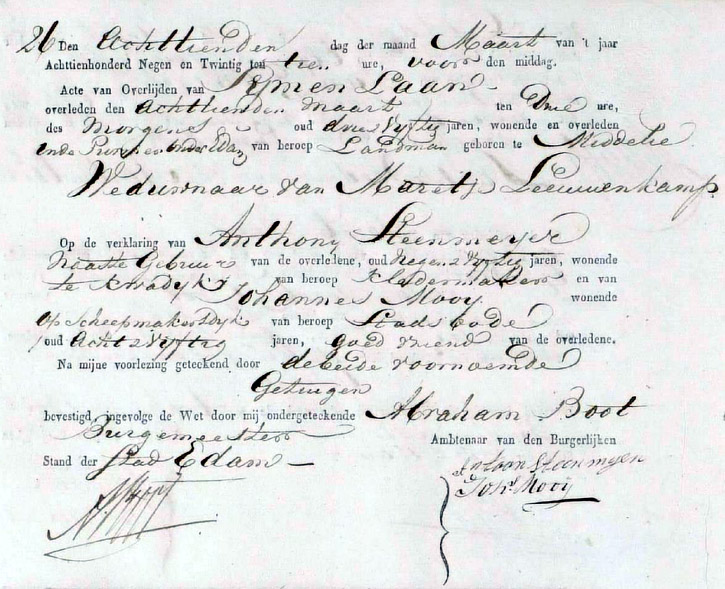 26 Den Achttienden dag der maand Maart van 't jaar
Achttienhonderd Negen en Twintig ten tien ure, voor den middag.
Acte van Overlijden van Symen Laan
overleden den Achttienden maart ten Drie ure,
des Morgens oud drie & Vyftig jaren, wonende en overleden
van beroep Landman geboren te Middelie
Weduwnaar van Maretje Leeuwenkamp
Op de verklaring van Anthony Steenmeyer
Naaste Gebuur van de overledene, oud Negen & Vyftig jaren, wonende
te Kwadyk van beroep Kledermaker en van
Johannes Mooy wonende
op Scheepmakersdyk van beroep Stads bode
oud Acht & Vyftig jaren, goed vriend van de overledene.
Na mijne voorlezing geteekend door de beide voornoemde
Getuigen
bevestigd ingevolge de Wet door mij ondergeteekende Abraham Boot
Burgemeester Ambtenaar van den Burgerlijken
Stand der Stad Edam
Antoon Steenmyer
Johs Mooij